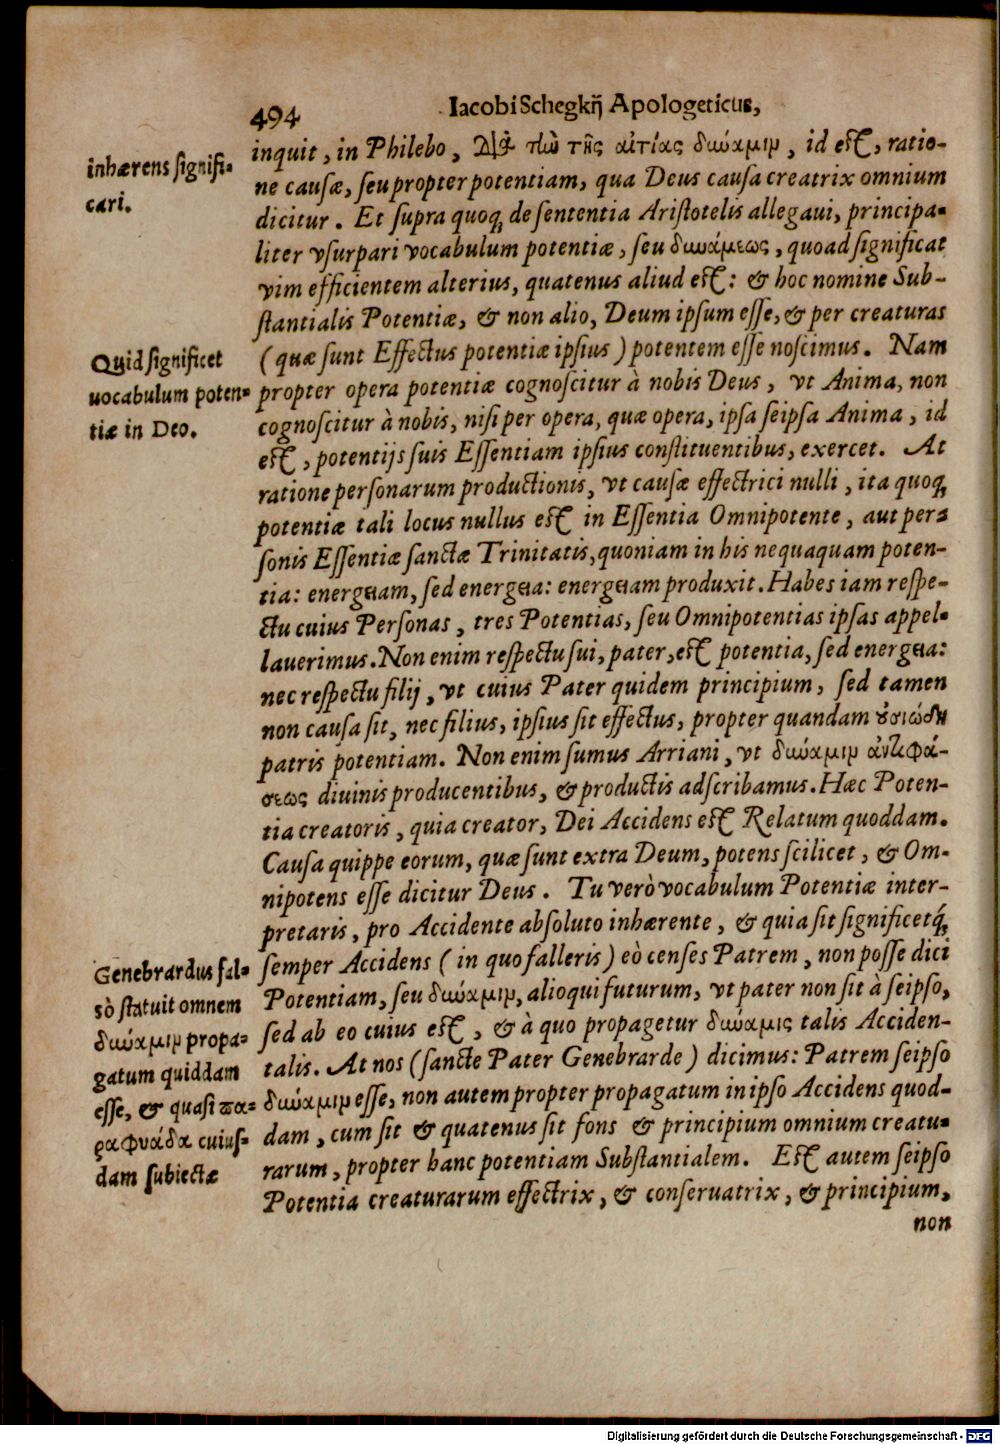 494 Iacobi Schegkij Apologeticus,
inhærens signifi-
cari.
inquit, in Philebo, Διὰ τὼ τῆς αἰτίας δυύαμιν, id est, ratio-
ne causæ, seu propter potentiam, qua Deus causa creatrix omnium
dicitur. Et supra quoq; de sententia Aristotelis allegaui, principa-
liter vsurpari vocabulum potentiæ, seu δυυάμεως, quoad significat
vim efficientem alterius, quatenus aliud est: & hoc nomine Sub-
stantialis Potentiæ, & non alio, Deum ipsum esse, & per creaturas
Quid significet
uocabulum poten-
tiæ in Deo.
(quæ sunt Effectus potentiæ ipsius) potentem esse noscimus. Nam
propter opera potentiæ cognoscitur à nobis Deus, vt Anima, non
cognoscitur à nobis, nisi per opera, quæ opera, ipsa seipsa Anima, id
est, potentijs suis Essentiam ipsius constituentibus, exercet. At
ratione personarum productionis, vt causæ effectrici nulli, ita quoq;
potentiæ tali locus nullus est in Essentia Omnipotente, aut per-
sonis Essentiæ sanctæ Trinitatis, quoniam in his nequaquam poten-
tia: energeiam, sed energeia: energeiam produxit. Habes iam respe-
ctu cuius Personas, tres Potentias, seu Omnipotentias ipsas appel-
lauerimus. Non enim respectu sui, pater, est potentia, sed energeia:
nec respectu filij, vt cuius Pater quidem principium, sed tamen
non causa sit, nec filius, ipsius sit effectus, propter quandam ȣσιώδη
patris potentiam. Non enim sumus Arriani, vt δυύαμιν ἀντιφά-
σεως diuinis producentibus, & productis adscribamus. Hæc Poten-
tia creatoris, quia creator, Dei Accidens est Relatum quoddam.
Causa quippe eorum, quæ sunt extra Deum, potens scilicet, & Om-
nipotens esse dicitur Deus. Tu verò vocabulum Potentiæ inter-
pretaris, pro Accidente absoluto inhærente, & quia sit significetq́;
Genebrardus fal-
sò statuit omnem
δυύαμιν propa-
gatum quiddam
esse, & quasi πα-
ραφυάδα cuius-
dam subiectæ
semper Accidens (in quo falleris) eò censes Patrem, non posse dici
Potentiam, seu δυύαμιν, alioqui futurum, vt pater non sit à seipso,
sed ab eo cuius est, & à quo propagetur δυύαμις talis Acciden-
talis. At nos (sancte Pater Genebrarde) dicimus: Patrem seipso
δυύαμιν esse, non autem propter propagatum in ipso Accidens quod-
dam, cum sit & quatenus sit fons & principium omnium creatu-
rarum, propter hanc potentiam Substantialem. Est autem seipso
Potentia creaturarum effectrix, & conseruatrix, & principium,
non
Digitalisierung gefördert durch die Deutsche Forschungsgemeinschaft - DFG